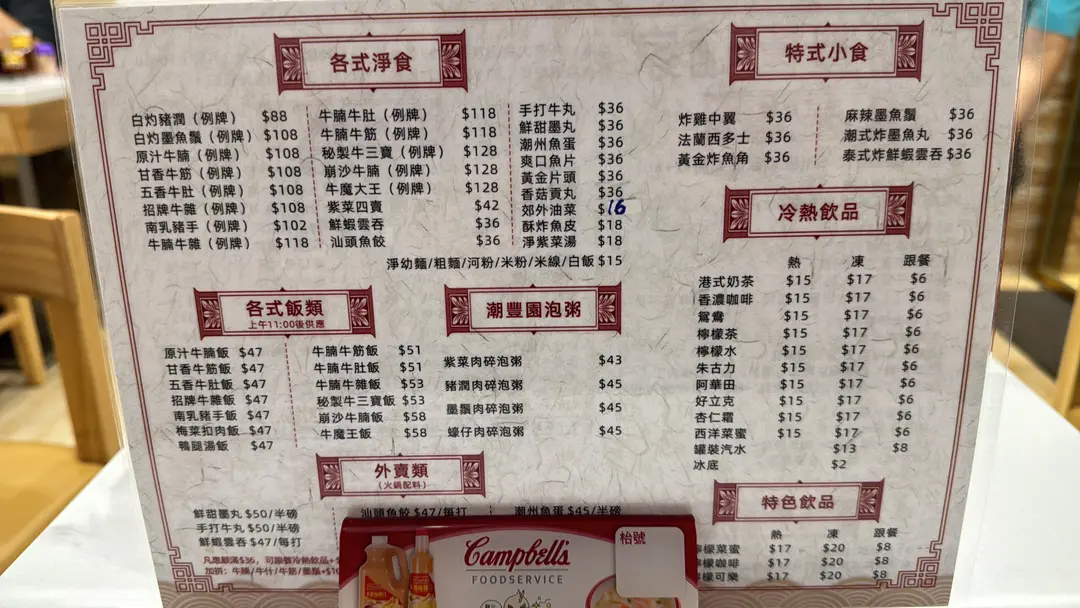 各式淨食
白灼豬潤（例牌） $88
白灼墨魚鬚（例牌） $108
原汁牛腩（例牌） $108
甘香牛筋（例牌） $108
五香牛肚（例牌） $108
招牌牛雜（例牌） $108
南乳豬手（例牌） $102
牛腩牛雜（例牌） $118
牛腩牛肚（例牌） $118
牛腩牛筋（例牌） $118
秘製牛三寶（例牌） $128
崩沙牛腩（例牌） $128
牛魔大王（例牌） $128
紫菜四賣 $42
鮮蝦雲吞 $36
汕頭魚餃 $36
手打牛丸 $36
鮮甜墨丸 $36
潮州魚蛋 $36
爽口魚片 $36
黃金片頭 $36
香菇貢丸 $36
郊外油菜 $16
酥炸魚皮 $18
淨紫菜湯 $18
淨幼麵/粗麵/河粉/米粉/米線/白飯 $15
各式飯類
上午11:00後供應
原汁牛腩飯 $47
甘香牛筋飯 $47
五香牛肚飯 $47
招牌牛雜飯 $47
南乳豬手飯 $47
梅菜扣肉飯 $47
鴨腿湯飯 $47
牛腩牛筋飯 $51
牛腩牛肚飯 $51
牛腩牛雜飯 $53
秘製牛三寶飯 $53
崩沙牛腩飯 $58
牛魔王飯 $58
潮豐園泡粥
紫菜肉碎泡粥 $43
豬潤肉碎泡粥 $45
墨鬚肉碎泡粥 $45
蠔仔肉碎泡粥 $45
外賣類
（火鍋配料）
鮮甜墨丸 $50/半磅
手打牛丸 $50/半磅
鮮蝦雲吞 $47/每打
汕頭魚餃 $47/每打
潮州魚蛋 $45/半磅
加拼：牛腩/牛什/牛筋/墨鬚+$10
特式小食
炸雞中翼 $36
法蘭西多士 $36
黃金炸魚角 $36
麻辣墨魚鬚 $36
潮式炸墨魚丸 $36
泰式炸鮮蝦雲吞 $36
冷熱飲品
熱 凍 跟餐
港式奶茶 $15 $17 $6
香濃咖啡 $15 $17 $6
鴛鴦 $15 $17 $6
檸檬茶 $15 $17 $6
檸檬水 $15 $17 $6
朱古力 $15 $17 $6
阿華田 $15 $17 $6
好立克 $15 $17 $6
杏仁霜 $15 $17 $6
西洋菜蜜 $15 $17 $6
罐裝汽水 $13 $8
冰底 $2
特色飲品
熱 凍 跟餐
檬菜蜜 $17 $20 $8
檬咖啡 $17 $20 $8
檬可樂 $17 $20 $8
Campbell's
FOODSERVICE
枱號